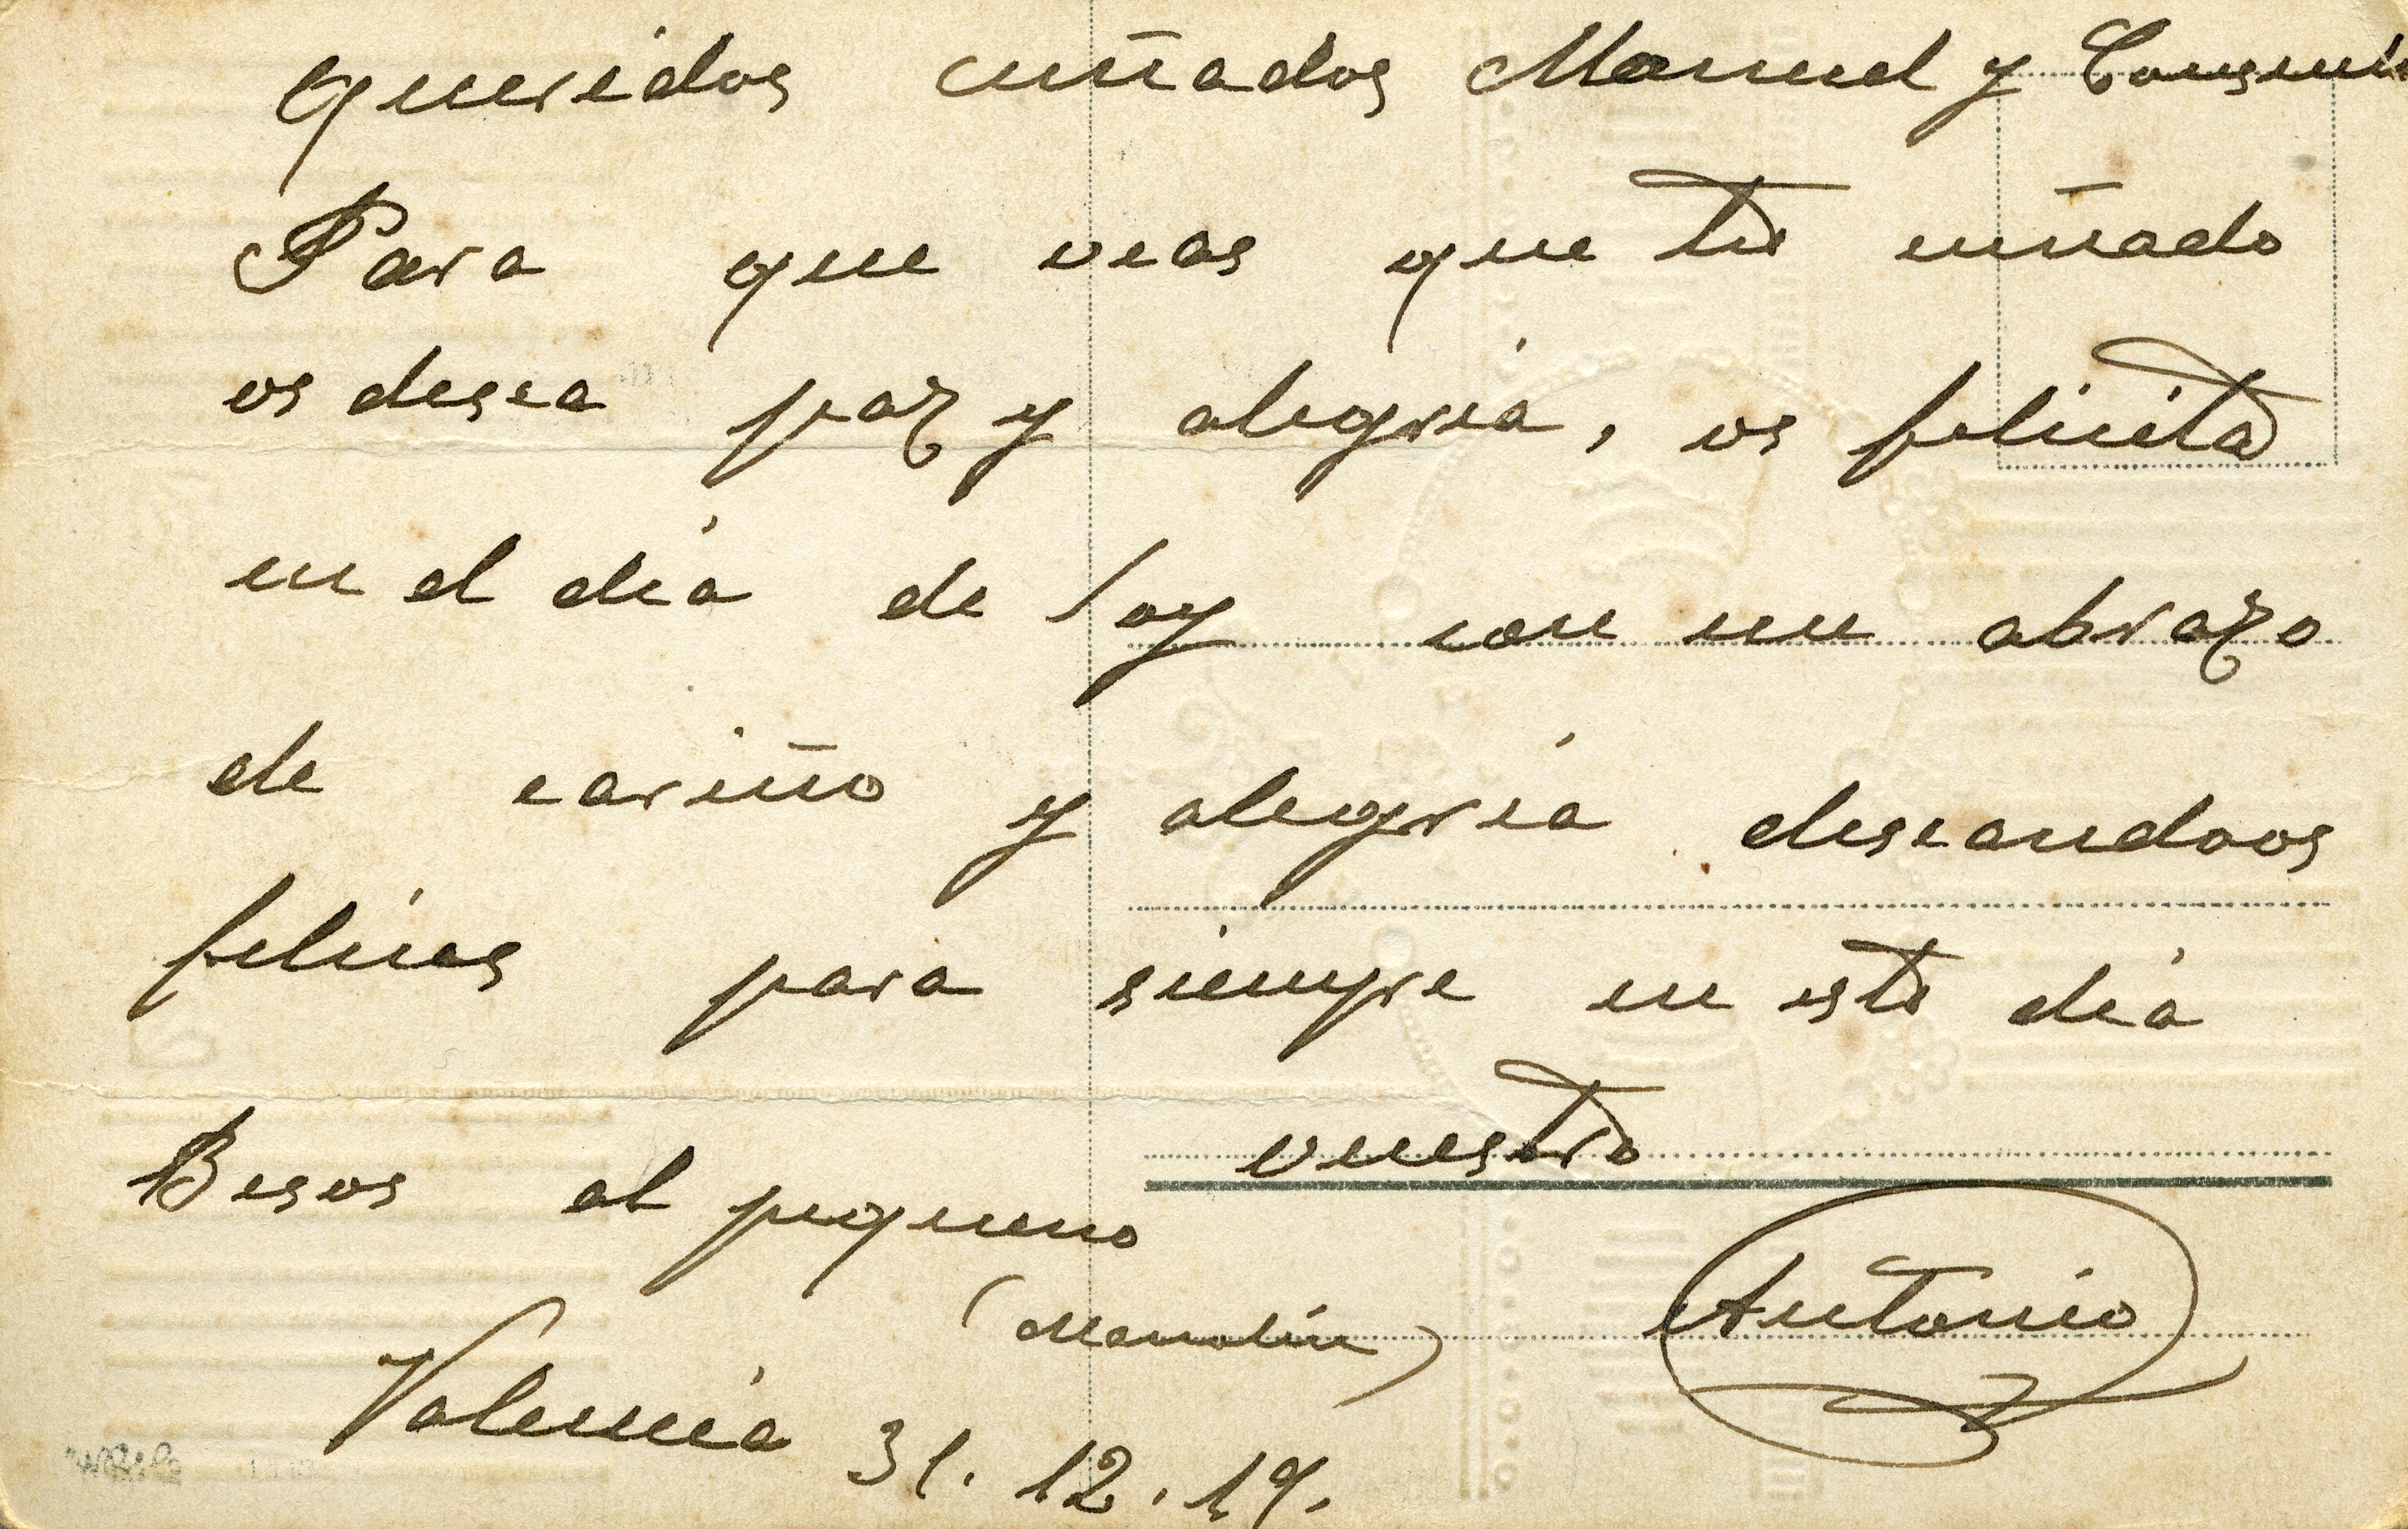 Queridos cuñados Manuel y
Para que veas que tu cuñado
os desea paz y alegria, os felicita
en el dia de hoy con un abrazo
de cariño y alegria deseandoos
felices para siempre en este dia
vuestro
Besos al pequeno
(Manolin)
Antonio
Valencia 31.12.19.